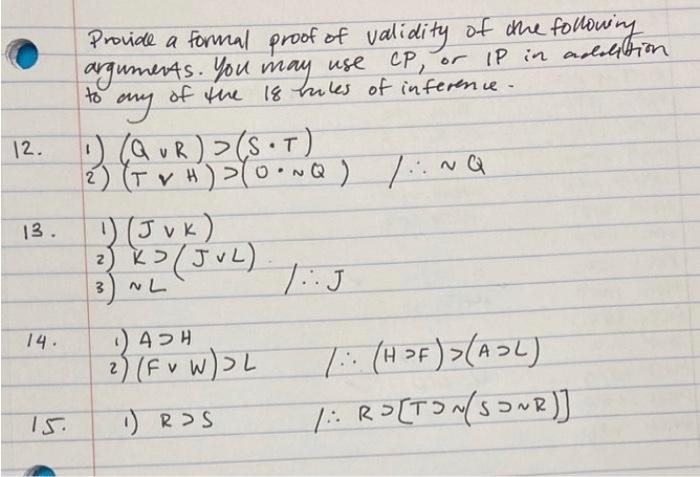 Provide a formal proof of validity of the following
arguments. You may use CP, or IP in addition
to any of the 18 rules of inference.
12. 1) (Q ∨ R) ⊃ (S • T)
2) (T ∨ H) ⊃ (O • ~Q) /∴ ~Q
13. 1) (J ∨ K)
2) K ⊃ (J ∨ L)
3) ~L /∴ J
14. 1) A ⊃ H
2) (F ∨ W) ⊃ L /∴ (H ⊃ F) ⊃ (A ⊃ L)
15. 1) R ⊃ S /∴ R ⊃ [T ⊃ ~(S ⊃ ~R)]